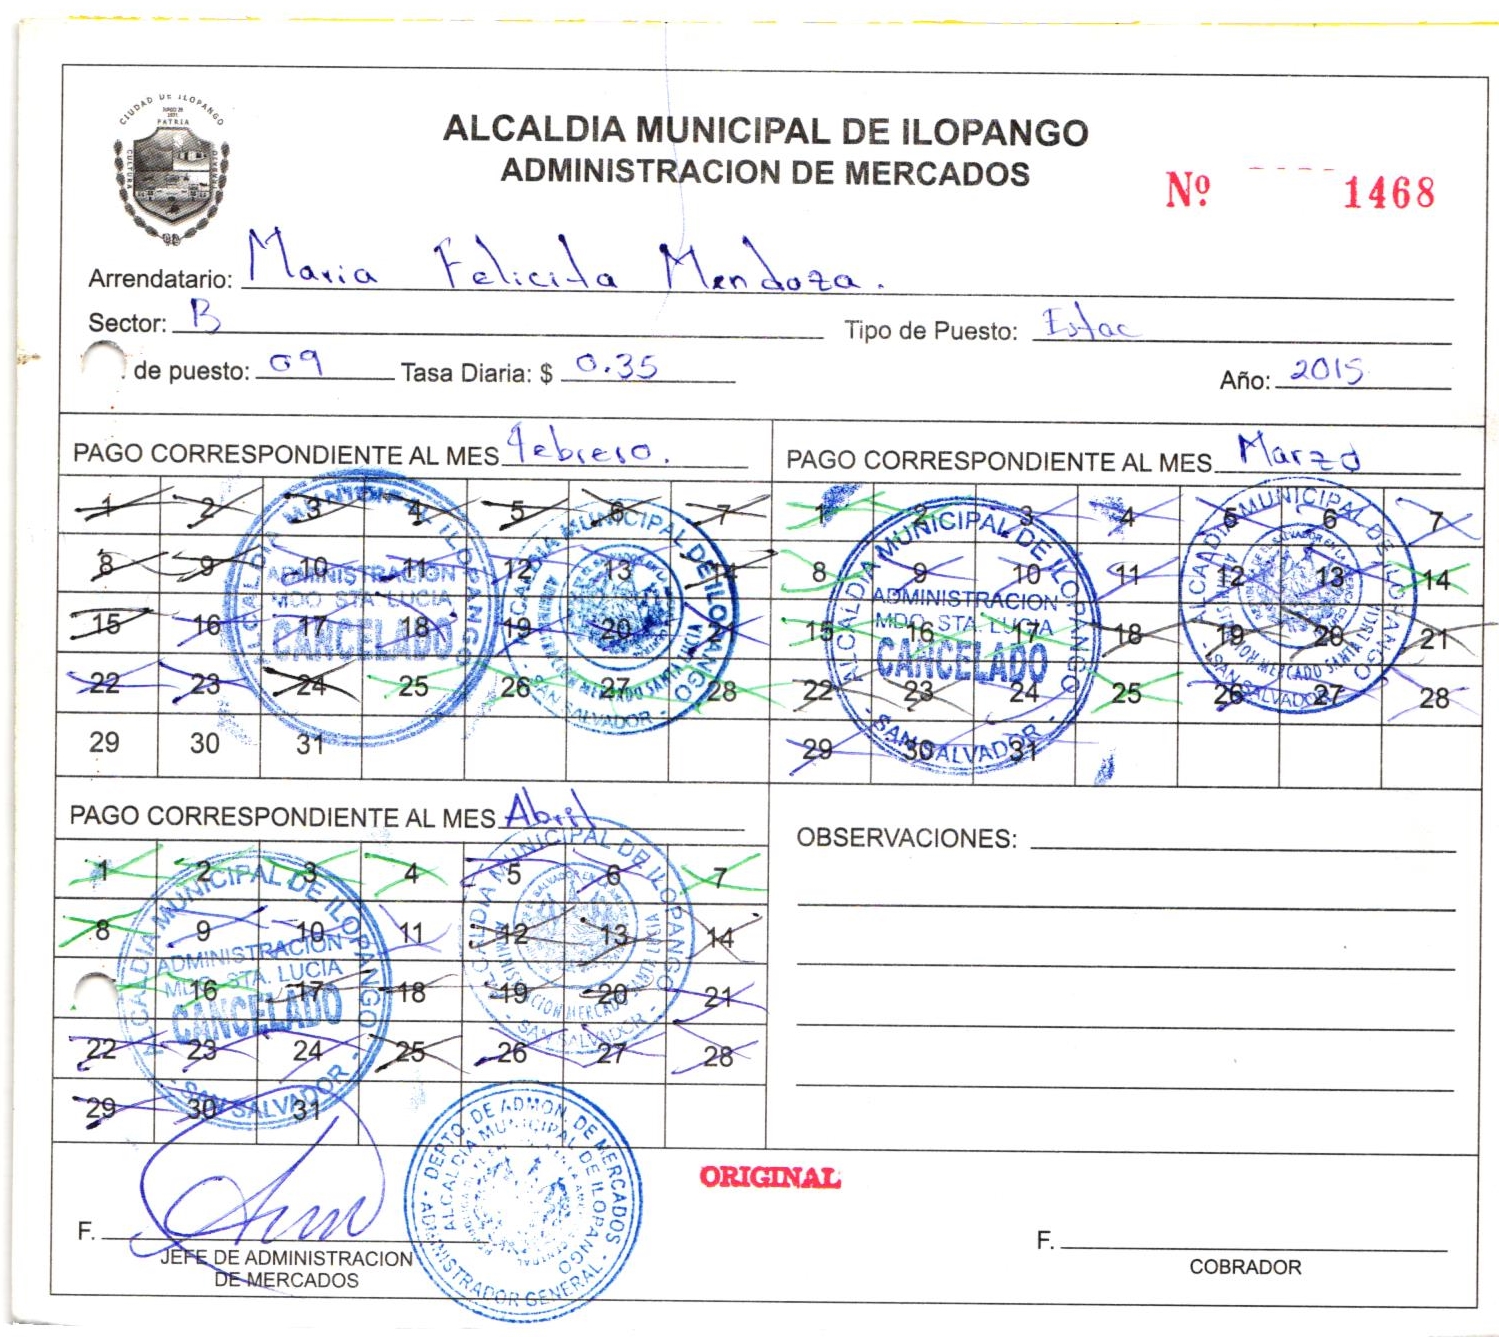 CIUDAD DE ILOPANGO
PATRIA
CULTURA
ALCALDIA MUNICIPAL DE ILOPANGO
ADMINISTRACION DE MERCADOS
Nº 1468
Arrendatario: Maria Felicita Mendoza.
Sector: B Tipo de Puesto: Estac
de puesto: 09 Tasa Diaria: $ 0.35 Año: 2015
PAGO CORRESPONDIENTE AL MES febrero.
1 2 3 4 5 6 7
8 9 10 11 12 13 14
15 16 17 18 19 20 21
22 23 24 25 26 27 28
29 30 31
ALCALDIA MUNICIPAL DE ILOPANGO
ADMINISTRACION
MDO. STA. LUCIA
CANCELADO
ALCALDIA MUNICIPAL DE ILOPANGO
ADMINISTRACION MERCADO SANTA LUCIA
- SAN SALVADOR -
PAGO CORRESPONDIENTE AL MES Marzo
1 2 3 4 5 6 7
8 9 10 11 12 13 14
15 16 17 18 19 20 21
22 23 24 25 26 27 28
29 30 31
ALCALDIA MUNICIPAL DE ILOPANGO
ADMINISTRACION
MDO. STA. LUCIA
CANCELADO
- SAN SALVADOR -
ALCALDIA MUNICIPAL DE ILOPANGO
ADMINISTRACION MERCADO SANTA LUCIA
- SAN SALVADOR -
PAGO CORRESPONDIENTE AL MES Abril
1 2 3 4 5 6 7
8 9 10 11 12 13 14
16 17 18 19 20 21
22 23 24 25 26 27 28
29 30 31
ALCALDIA MUNICIPAL DE ILOPANGO
ADMINISTRACION
MDO. STA. LUCIA
CANCELADO
- SAN SALVADOR -
ALCALDIA MUNICIPAL DE ILOPANGO
ADMINISTRACION MERCADO SANTA LUCIA
- SAN SALVADOR -
OBSERVACIONES:
ORIGINAL
F.
JEFE DE ADMINISTRACION
DE MERCADOS
DEPTO. DE ADMON. DE MERCADOS
ALCALDIA MUNICIPAL DE ILOPANGO
- ADMINISTRADOR GENERAL -
F.
COBRADOR